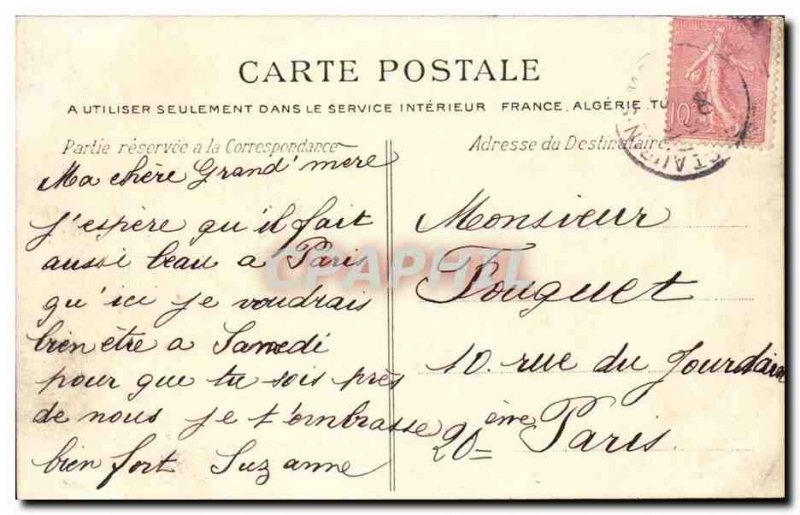 CARTE POSTALE
A UTILISER SEULEMENT DANS LE SERVICE INTÉRIEUR FRANCE, ALGÉRIE, TU
Partie réservée à la Correspondance
Adresse du Destinataire
Ma chère Grand'mere
j'espère qu'il fait
aussi beau a Paris
qu'ici je voudrais
bien être a Samedi
pour que tu sois près
de nous je t'embrasse
bien fort Suzanne
Monsieur
Fouquet
10. rue du Jourdain
20ème Paris
10
CPAPHIL